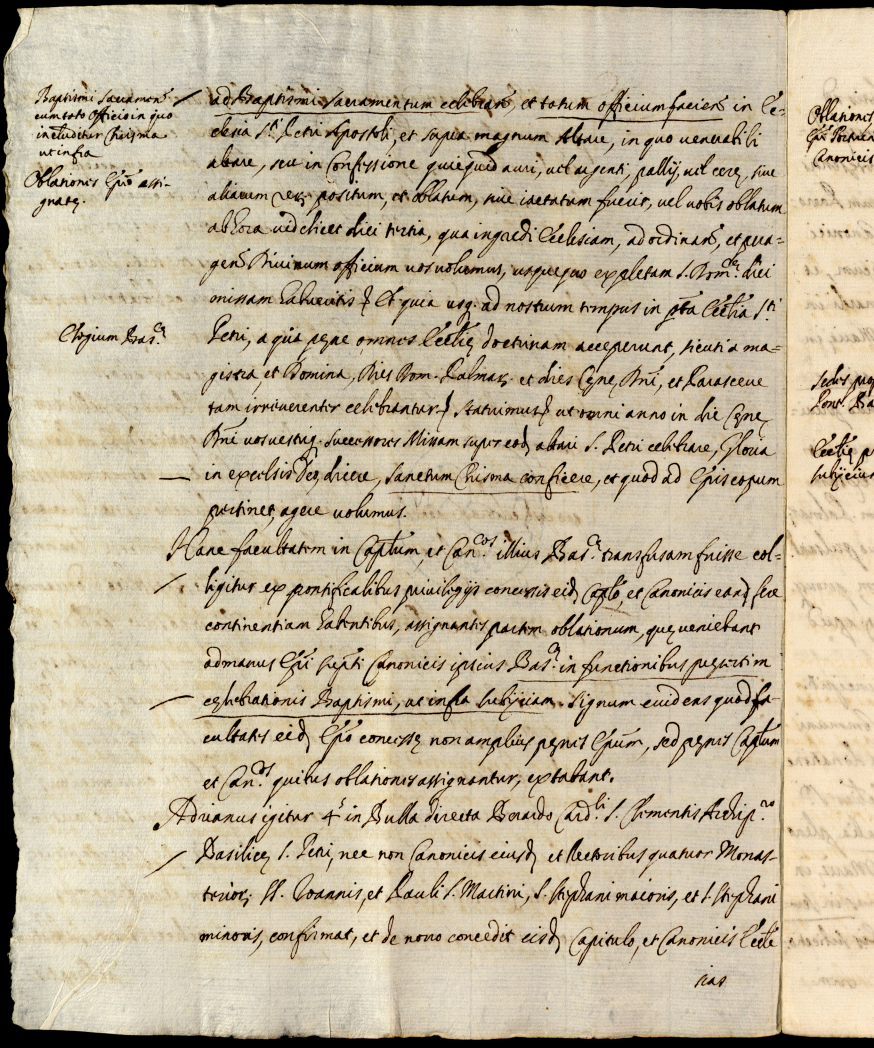 Baptismi Sacramen
cum toto officio in quo
includitur Chrisma
ut infra
Oblationes Epo assi-
gnate.
ad Baptismi sacramentum celebran, et totum officium facien in Ec-
clesia Sti Petri Apostoli, et supra magnum Altare, in quo venerabili
altare, seu in Confessione quicquid auri, vel argenti, pallij, vel cere, sive
aliarum positum, et oblatum, sive iactatum fuerit, vel vobis oblatum
ab hora videlicet diei tertia, qua ingredi Ecclesiam, ad ordinan, et pera-
gen Divinum officium vos volumus, usquequo expletam S. Rom. diei
missam habueritis Et quia usq. ad nostrum tempus in pta Ecclia Sti
Elogium Bas.
Petri, a qua pene omnes Ecclie doctrinam acceperunt, sicuti a ma-
gistra, et Domina, Dies Dom. Palmar. et dies Cene Dni, et Parasceve
tam irreverenter celebrantur statuimus ut omni anno in die Cene
Dni vos vestriq. successores Missam super eod altari S. Petri celebrare, Gloria
in excelsis Deo dicere, sanctum Chrisma conficere, et quod ad Episcopum
pertinet, agere volumus.
Hanc facultatem in Captum, et Can.cos illius Bas. transfusam fuisse col-
ligitur ex pontificalibus privilegijs concessis eid Caplo, et Canonicis eand fere
continentiam habentibus, assignantes partem oblationum, que veniebant
ad manus Epi Canonicis ipsius Bas. in functionibus
celebrationis Baptismi, ut infra subijciam. Signum evidens quod fa-
cultates eid Epo concesse non amplius penes Epum, sed penes Captum
et Can.cos quibus oblationes assignantur, extabant.
Adrianus igitur 4s in Bulla directa Bernardo Card.li S. Clementis Archip.ro
Basilice S. Petri, nec non Canonicis eiusd, et Rectoribus quatuor Monas-
terior. SS. Ioannis, et Pauli S. Martini, S. Stephani maioris, et S. Stephani
minoris, confirmat, et de novo concedit eisd Capitulo, et Canonicis Eccle
sias
Oblationis
Canonicis
Sedes
Pont. Ba
Ecclie
subijciun